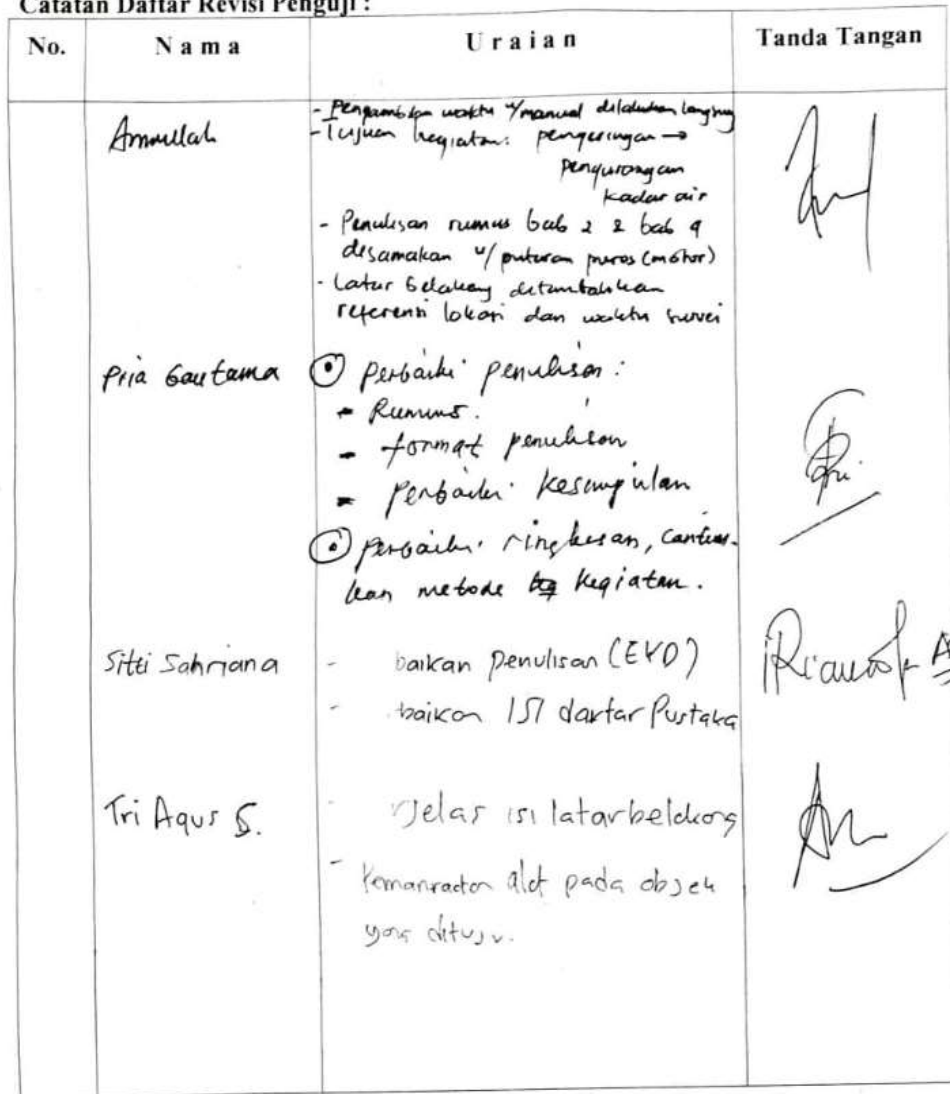 Catatan Daftar Revisi Penguji :
No. N a m a U r a i a n Tanda Tangan
Amrullah
- Pengambilan waktu u/manual dilakukan langsung
- Tujuan kegiatan: pengeringan →
pengurangan
kadar air
- Penulisan rumus bab 2 & bab 4
disamakan u/ putaran poros (motor)
- Latar belakang ditambahkan
referensi lokasi dan waktu survei
Pria Gautama
perbaiki penulisan :
- Rumus.
- format penulisan
- perbaiki kesimpulan
perbaiki ringkasan, cantum-
kan metode kegiatan.
Sitti Sahriana
- baikan penulisan (EYD)
- baikan ISI daftar Pustaka
Tri Agus S.
- jelas isi latarbelakang
- Kemanfaatan alat pada objek
yang dituju.